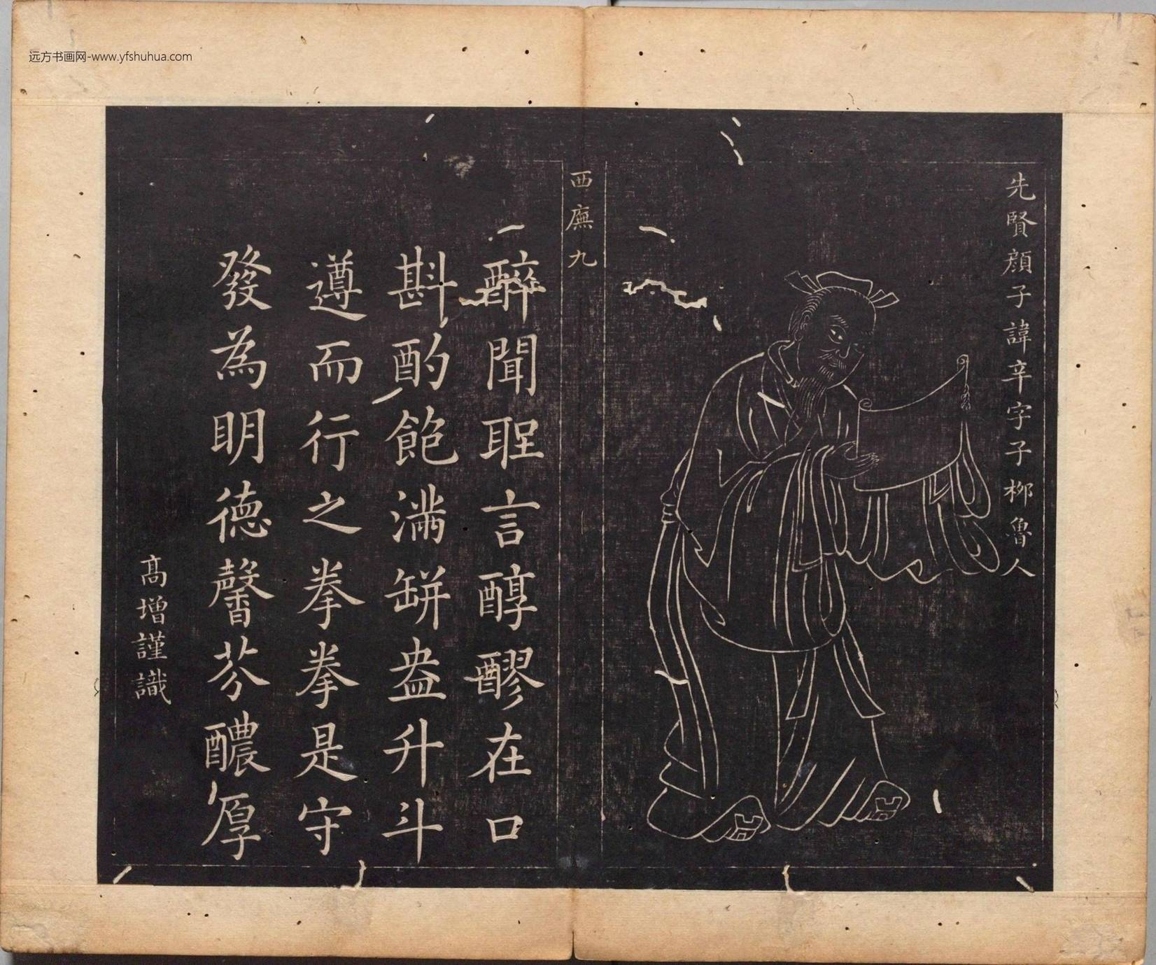 远方书画网-www.yfshuhua.com
先賢顔子諱辛字子栁魯人
西廡九
醉聞聖言醇醪在口
斟酌飽滿缾盎升斗
遵而行之拳拳是守
發為明德馨芬醲厚
高增謹識